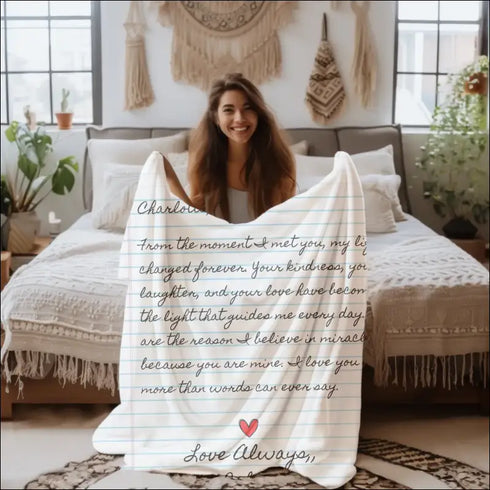 Charlotte,
From the moment I met you, my li
changed forever. Your kindness, yo
laughter, and your love have becom
the light that guides me every day.
are the reason I believe in miracl
because you are mine. I love you
more than words can ever say.
Love Always,,